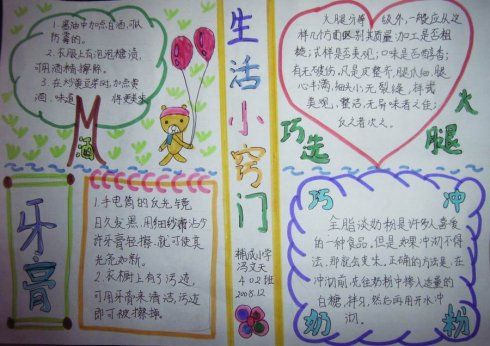 生活小窍门
1.酱油中加点白酒,可以
防霉的。
2.衣服上有泡泡糖渍,
可用酒精擦除。
3.在炒黄豆芽时,加点黄
酒,味道
酒
大腿分等级外,一般应从这
样几个方面区别其质量:加工是否粗
糙;式样是否美观;口味是否醇香;
有无破伤,凡是皮整齐,腿爪细,腿
心丰满,油头小,无裂缝,样式
美观,整洁,无异味者之佳;
反之者次之。
巧选
火腿
牙膏
1.手电筒的反光镜
日久发黑,用细纱布沾少
许牙膏轻擦,就可使其
光亮如新。
2.衣橱上有了污迹,
可用牙膏来清洁,污迹
即可被擦掉。
辅成小学
冯文天
402班
2008.12
巧冲
奶粉
全脂淡奶粉是许多人喜爱
的一种食品,但是如果冲沏不得
法,那就会生。正确的方法是,在
冲沏前,先往奶粉中掺入适量的
白糖,拌匀,然后再用开水冲
沏。